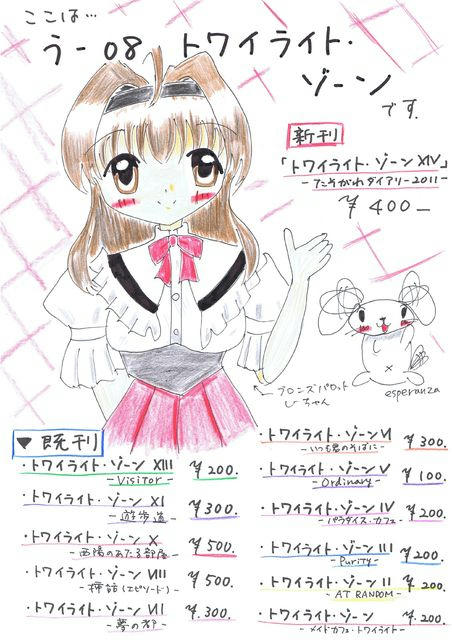 ここは…
う-08 トワイライト・
ゾーン
です.
新刊
「トワイライト・ゾーン XIV」
-たそがれダイアリー2011-
¥400-
ブロンズパロット
ひちゃん
esperanza
▼既刊
・トワイライト・ゾーン XIII ¥200.
-Visitor-
・トワイライト・ゾーン XI ¥300.
-遊歩道-
・トワイライト・ゾーン X ¥500.
-西陽のあたる部屋-
・トワイライト・ゾーン VIII ¥500.
-挿話(エピソード)-
・トワイライト・ゾーン VII ¥300.
・トワイライト・ゾーン VI ¥300.
-いつも君のそばに-
・トワイライト・ゾーン V ¥100.
-Ordinary-
・トワイライト・ゾーン IV ¥200.
-パラダイス・カフェ-
・トワイライト・ゾーン III ¥200.
-Purity-
・トワイライト・ゾーン II ¥200.
-AT RANDOM-
・トワイライト・ゾーン ¥200.
-メイドカフェ・トワイライト-